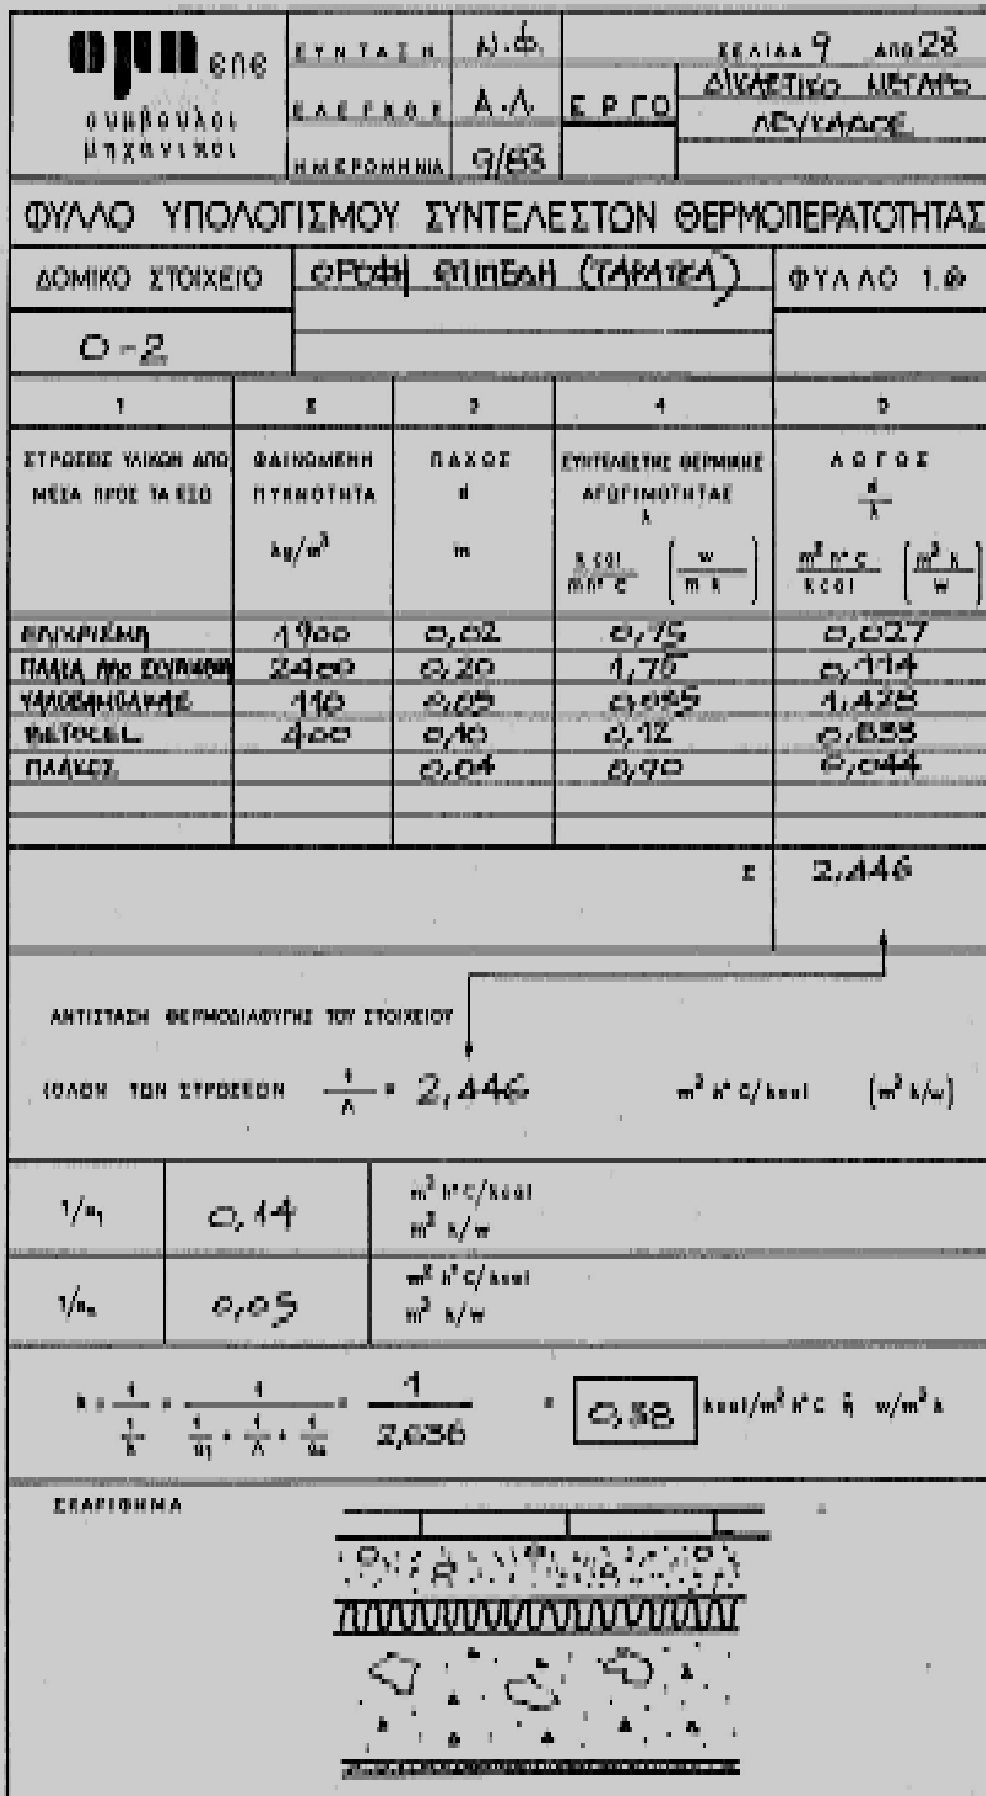 ΕΠΕ
σύμβουλοι
μηχανικοί
ΣΥΝΤΑΞΗ Ν.Φ.
ΕΛΕΓΧΟΣ Α.Λ.
ΗΜΕΡΟΜΗΝΙΑ 9/83
ΕΡΓΟ
ΣΕΛΙΔΑ 9 ΑΠΟ 28
ΔΙΚΑΣΤΙΚΟ ΜΕΓΑΡΟ
ΛΕΥΚΑΔΟΣ
ΦΥΛΛΟ ΥΠΟΛΟΓΙΣΜΟΥ ΣΥΝΤΕΛΕΣΤΩΝ ΘΕΡΜΟΠΕΡΑΤΟΤΗΤΑΣ
ΔΟΜΙΚΟ ΣΤΟΙΧΕΙΟ ΟΡΟΦΗ ΕΠΙΠΕΔΗ (ΤΑΡΑΤΣΑ) ΦΥΛΛΟ
Ο-2
1 2 3 4 5
ΣΤΡΩΣΕΙΣ ΥΛΙΚΩΝ ΑΠΟ ΦΑΙΝΟΜΕΝΗ ΠΑΧΟΣ ΣΥΝΤΕΛΕΣΤΗΣ ΘΕΡΜΙΚΗΣ ΛΟΓΟΣ
ΜΕΣΑ ΠΡΟΣ ΤΑ ΕΞΩ ΠΥΚΝΟΤΗΤΑ d ΑΓΩΓΙΜΟΤΗΤΑΣ d/λ
λ
kg/m³ m kcal/mh°C (w/m k) m² h°C/kcal (m² k/w)
ΕΠΙΧΡΙΣΜΑ 1900 0,02 0,75 0,027
ΠΛΑΚΑ ΑΠΟ ΣΚΥΡΟΔΕΜΑ 2400 0,20 1,75 0,114
ΥΑΛΟΒΑΜΒΑΚΑΣ 110 0,05 0,035 1,428
BETOCEL 400 0,10 0,12 0,833
ΠΛΑΚΕΣ 0,04 0,90 0,044
Σ 2,446
ΑΝΤΙΣΤΑΣΗ ΘΕΡΜΟΔΙΑΦΥΓΗΣ ΤΟΥ ΣΤΟΙΧΕΙΟΥ
(ΟΛΩΝ ΤΩΝ ΣΤΡΩΣΕΩΝ 1/Λ = 2,446 m² h°C/kcal (m² k/w)
1/α₁ 0,14 m² h°C/kcal
m² k/w
1/αₐ 0,05 m² h°C/kcal
m² k/w
k = 1/(1/k) = 1/(1/α₁ + 1/Λ + 1/αₐ) = 1/2,636 = 0,38 kcal/m² h°C ή w/m² k
ΣΚΑΡΙΦΗΜΑ